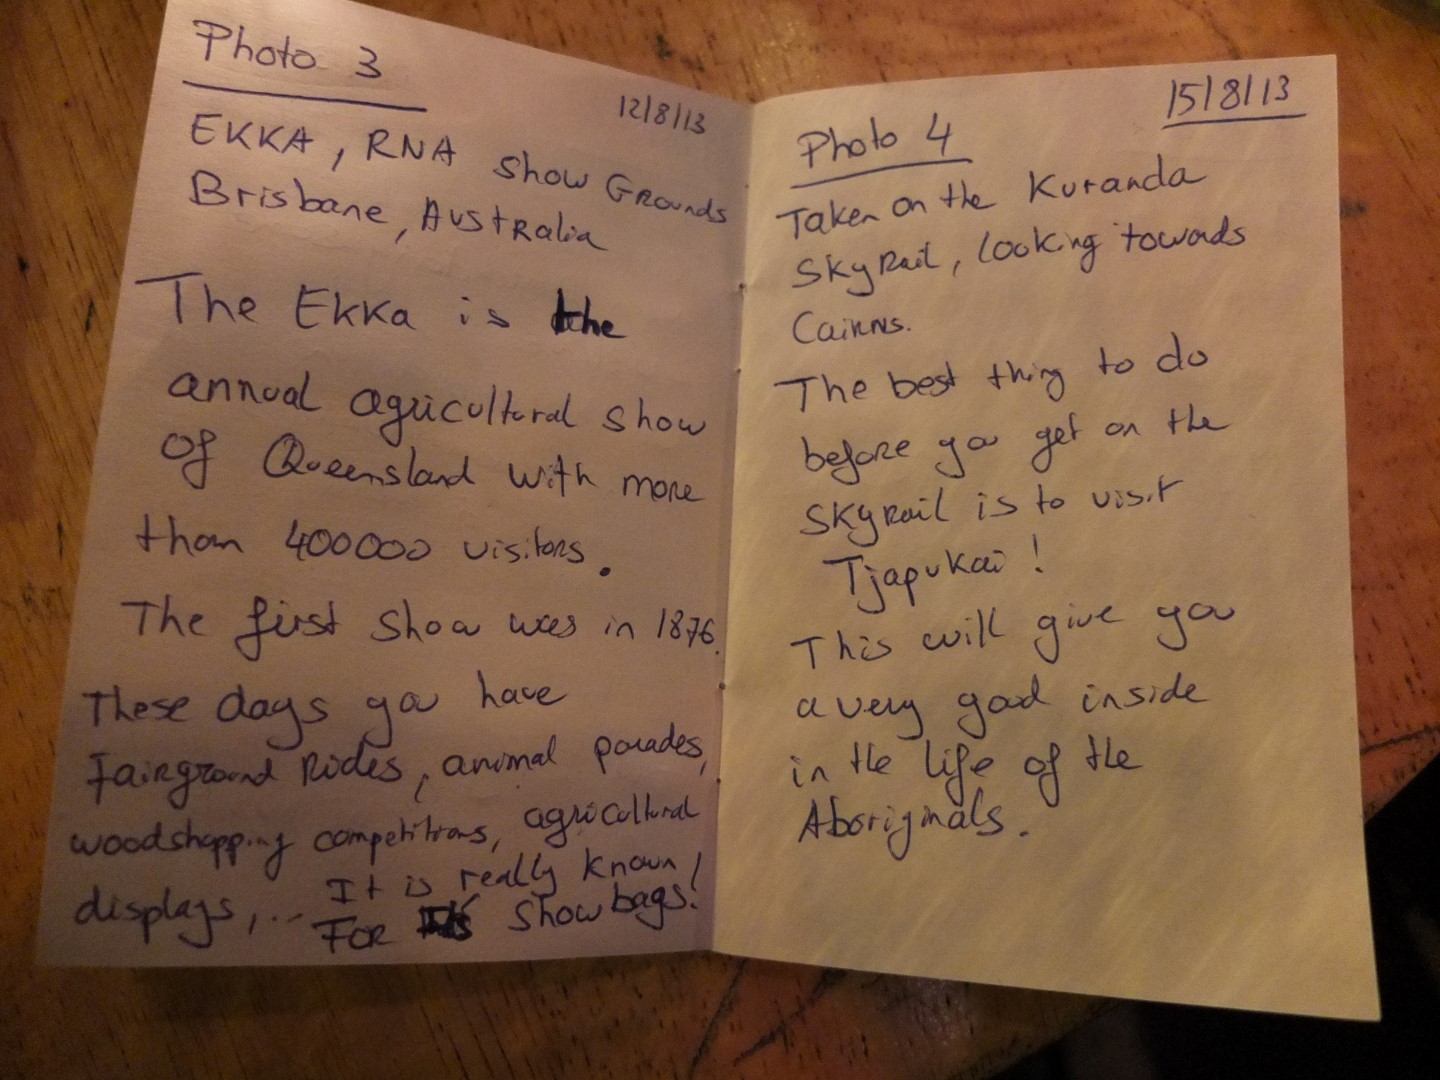 Photo 3
12/8/13
EKKA, RNA Show Grounds
Brisbane, Australia
The Ekka is the
annual agricultural show
of Queensland with more
than 400000 visitors.
The first show was in 1876.
These days you have
Fairground Rides, animal parades,
woodshopping competitions, agricultural
displays,... It is really known
For its Show bags!
15/8/13
Photo 4
Taken on the Kuranda
SkyRail, looking towards
Cairns.
The best thing to do
before you get on the
Skyrail is to visit
Tjapukai!
This will give you
a very good inside
in the life of the
Aboriginals.